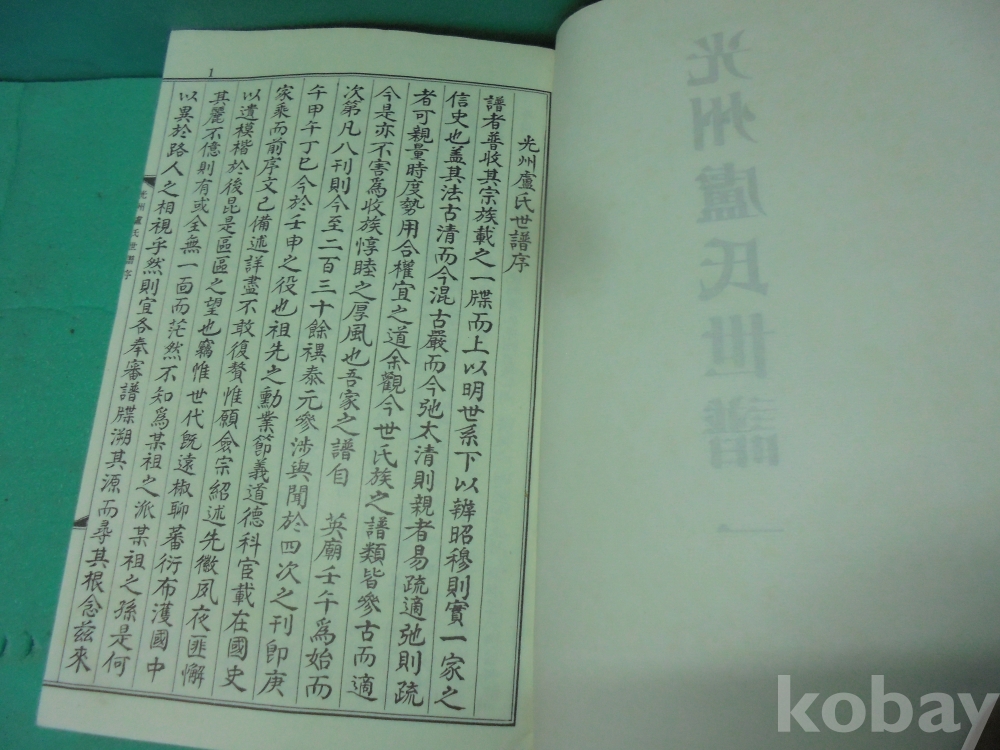 光州盧氏世譜一
1
光州盧氏世譜序
譜者普收其宗族載之一牒而上以明世系下以辨昭穆則實一家之
信史也盖其法古清而今混古嚴而今弛太清則親者易疏適弛則疏
者可親量時度勢用合權宜之道余觀今世氏族之譜類皆參古而適
今是亦不害為收族惇睦之厚風也吾家之譜自 英廟壬午為始而
次第凡八刊則今至二百三十餘禩泰元參涉與聞於四次之刊即庚
午甲午丁巳今於壬申之役也祖先之勳業節義道德科宦載在國史
家乘而前序文已備述詳盡不敢復贅惟願僉宗紹述先徽夙夜匪懈
以遺模楷於後昆是區區之望也竊惟世代旣遠椒聊蕃衍布濩國中
其麗不億則有或全無一面而茫然不知為某祖之派某祖之孫是何
以異於路人之相視乎然則宜各奉審譜牒溯其源而尋其根念茲來
光州盧氏世譜序
kobay